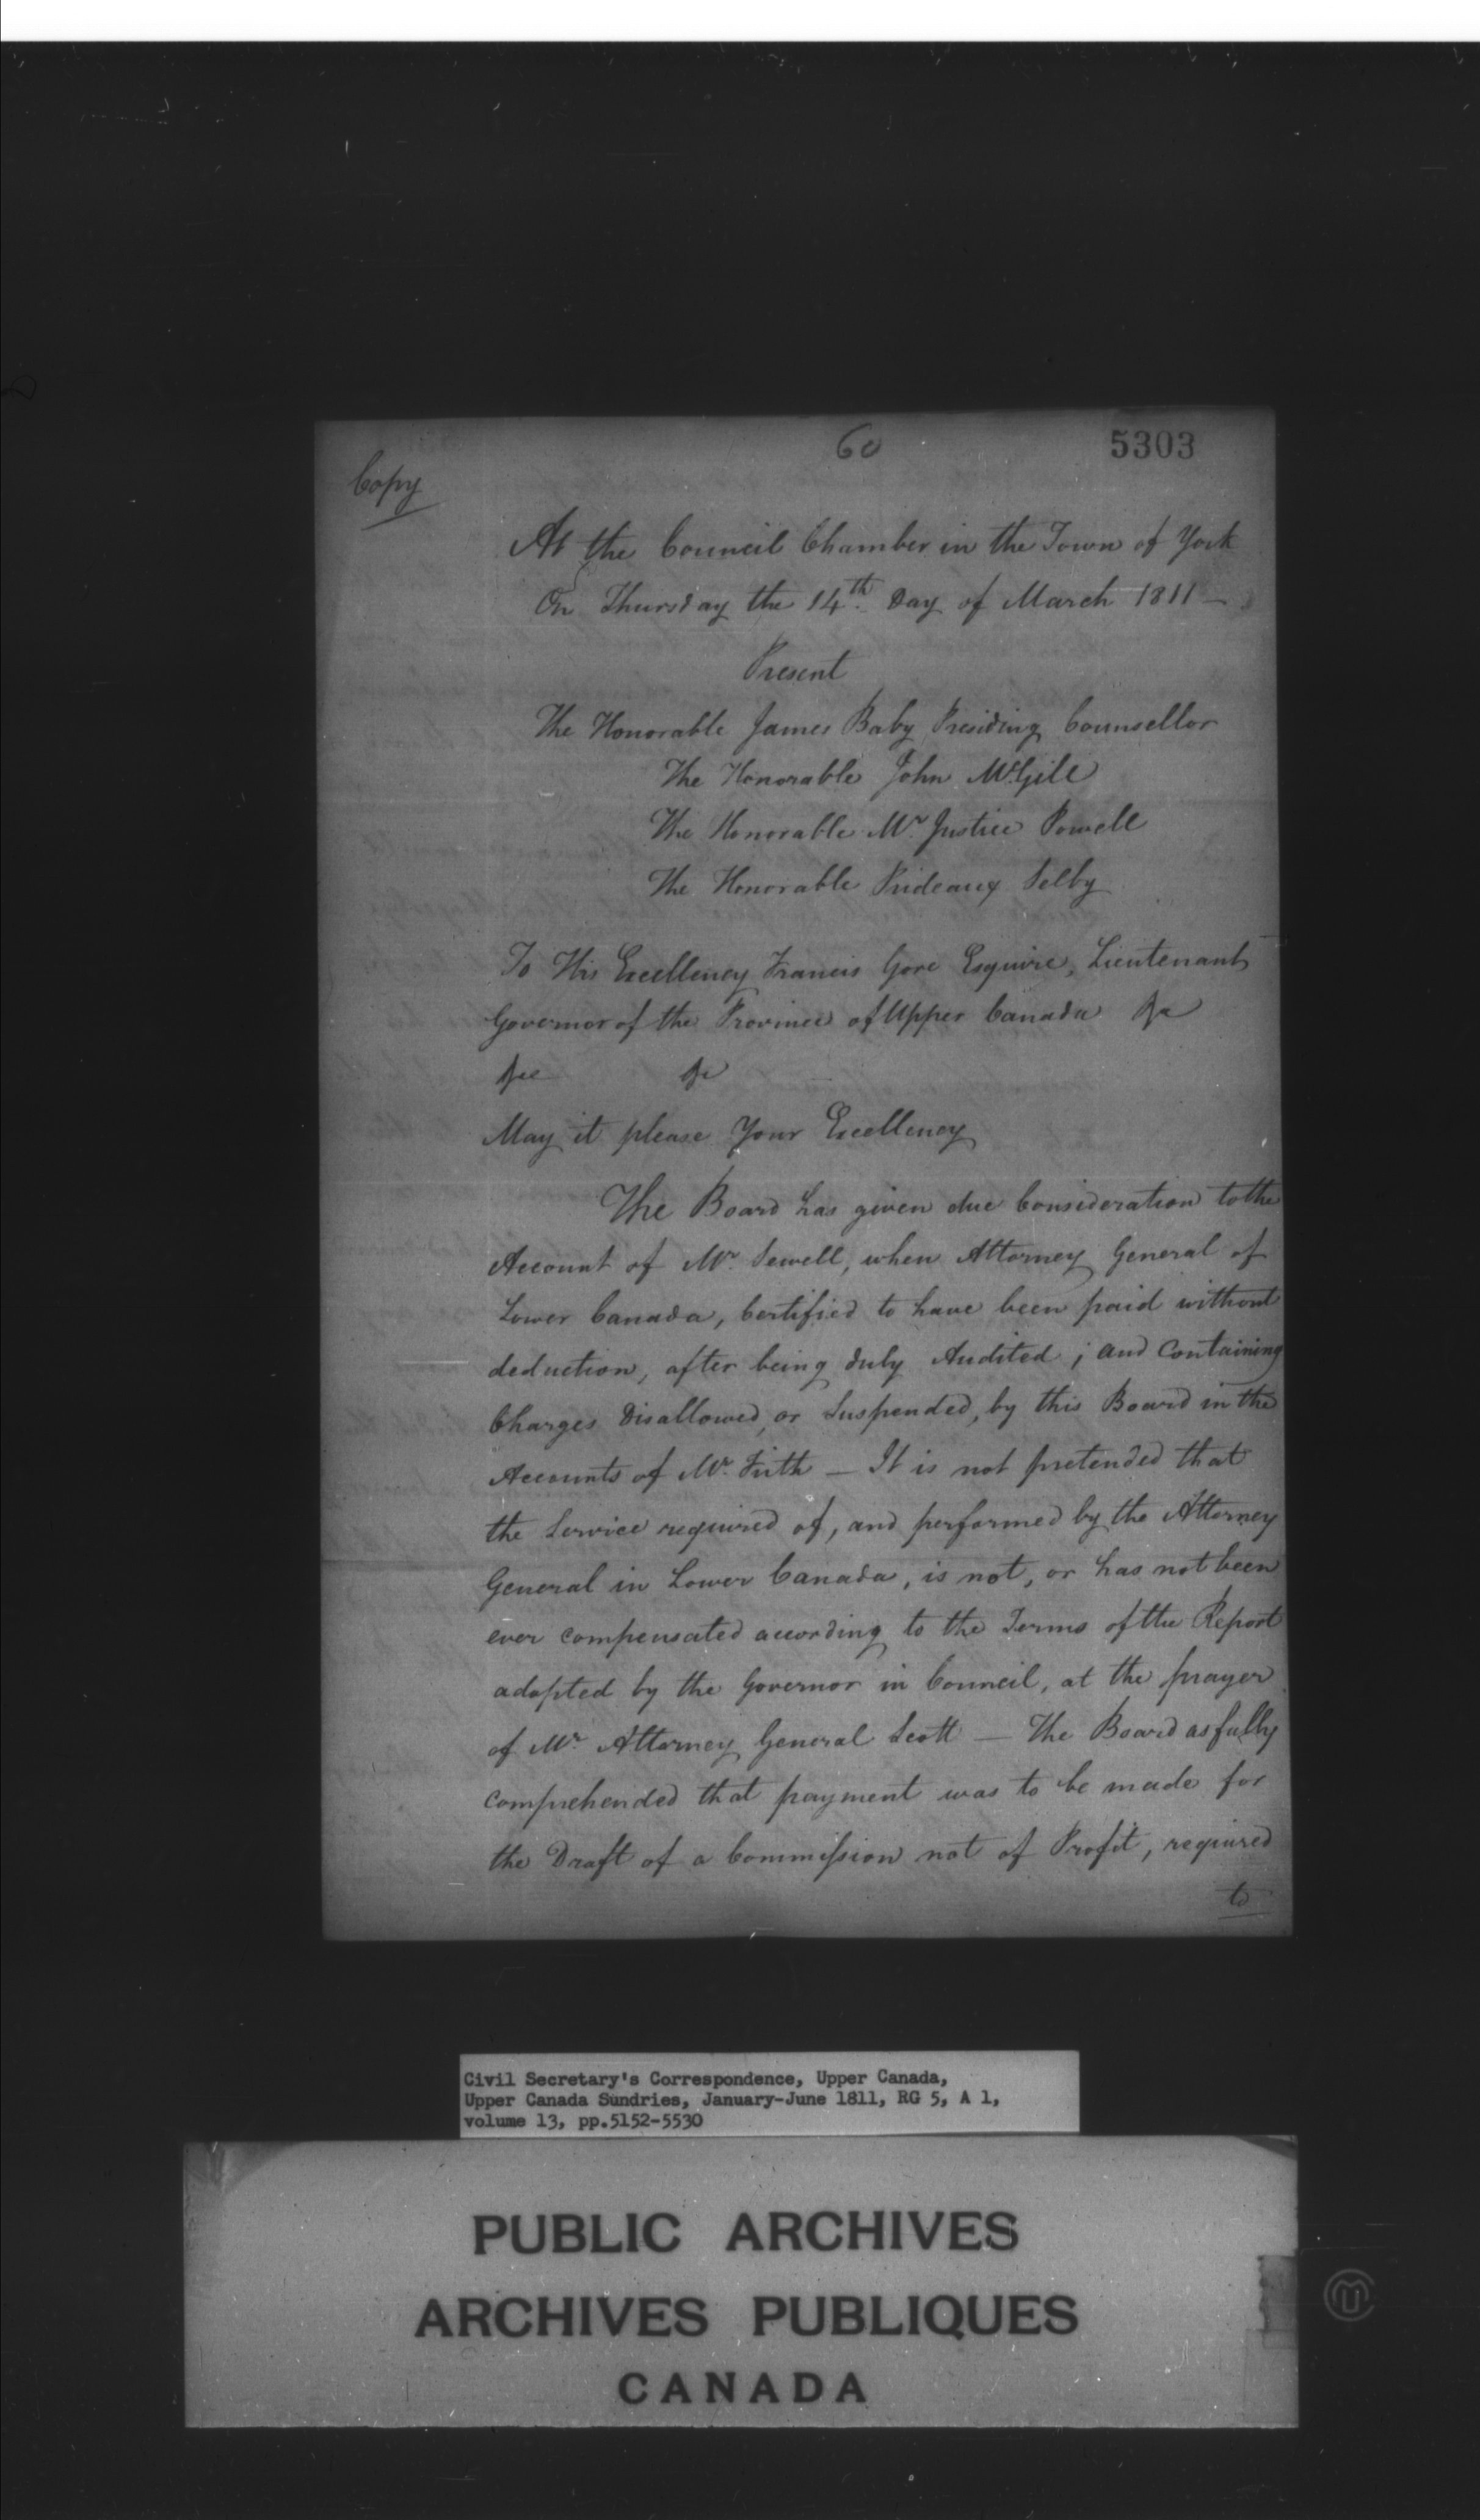 60
5303
Copy
At the Council Chamber in the Town of York
On Thursday the 14th. Day of March 1811 —
Present
The Honorable James Baby Presiding Counsellor
The Honorable John McGill
The Honorable Mr. Justice Powell
The Honorable Prideaux Selby
To His Excellency Francis Gore Esquire, Lieutenant
Governor of the Province of Upper Canada &c
&c &c
May it please Your Excellency
The Board has given due Consideration to the
Account of Mr. Sewell, when Attorney General of
Lower Canada, Certified to have been paid without
deduction, after being duly Audited; and Containing
Charges Disallowed, or Suspended, by this Board in the
Accounts of Mr. Firth — It is not pretended that
the Service required of, and performed by the Attorney
General in Lower Canada, is not, or has not been
ever compensated according to the Terms of the Report
adopted by the Governor in Council, at the prayer
of Mr. Attorney General Scott — The Board as fully
comprehended that payment was to be made for
the Draft of a Commission not of Profit, required
to
Civil Secretary's Correspondence, Upper Canada,
Upper Canada Sundries, January-June 1811, RG 5, A 1,
volume 13, pp.5152-5530
PUBLIC ARCHIVES
ARCHIVES PUBLIQUES
CANADA